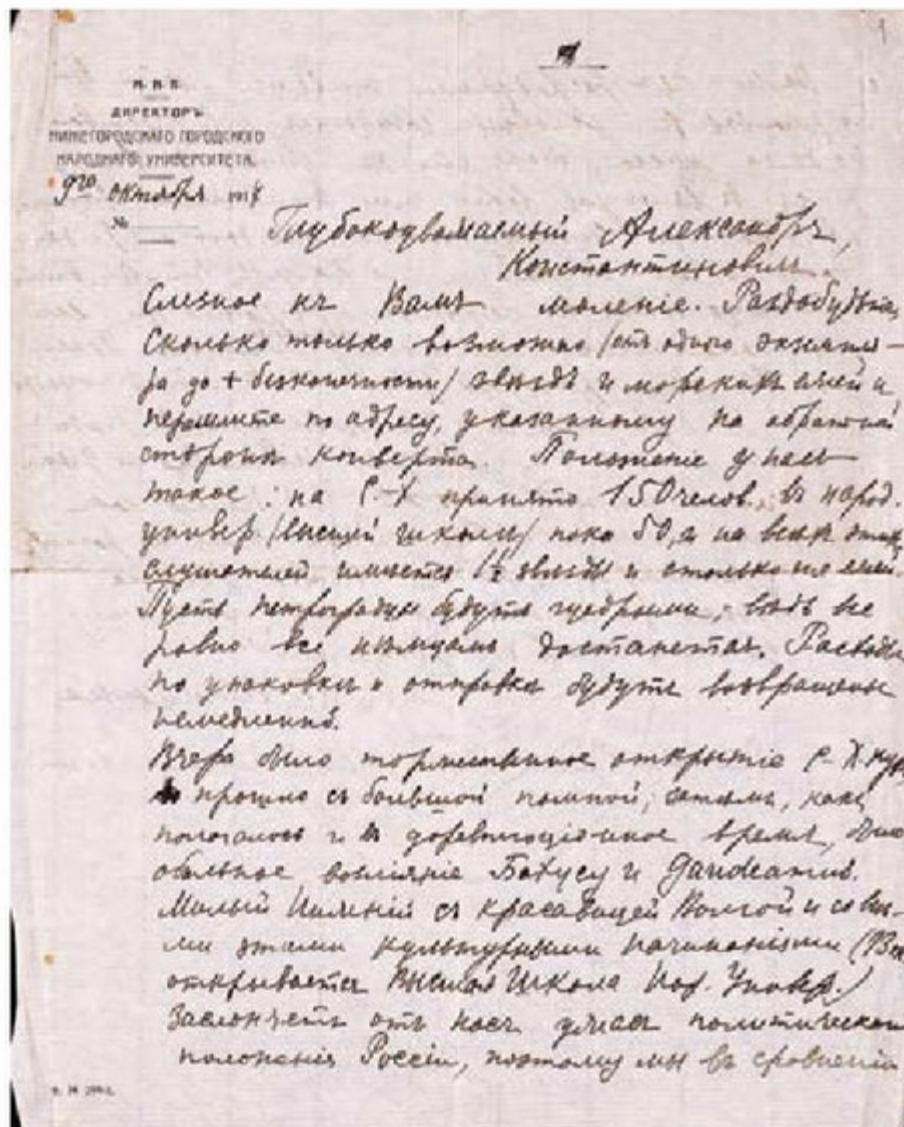 М. Н. П.
ДИРЕКТОРЪ
НИЖЕГОРОДСКАГО ГОРОДСКОГО
НАРОДНАГО УНИВЕРСИТЕТА.
9го октября 191
№
Глубокоуважаемый Александръ
Константиновичъ.
Слезное къ Вамъ моленіе. Раздобудьте,
сколько только возможно /отъ одного экземпля-
ра до + безконечности/ звѣздъ и морскихъ ежей и
перешлите по адресу, указанному на обратной
сторонѣ конверта. Положеніе у насъ
такое: на С-Х принято 150 челов., въ народ.
универ. /высшей школы/ пока 50, а на всѣхъ этихъ
слушателей имѣется 1½ звѣзды и столько же ежей.
Пусть петроградцы будутъ щедрыми, вѣдь все
равно все нѣмцамъ достанется. Расходы
по упаковкѣ и отправкѣ будутъ возвращены
немедленно.
Вчера было торжественное открытіе С-Х кур.
прошло съ большой помпой; затѣмъ, какъ
полагалось и въ дореволюціонное время, было
обильное возліяніе Бахусу и Gaudeamus.
Милый Нижній съ красавицей Волгой и со всѣ-
ми этими культурными начинаніями
открывается Высшая Школа Нар. Универ./
заслоняетъ отъ насъ ужасъ политическаго
положенія Россіи, поэтому мы въ сравненіи